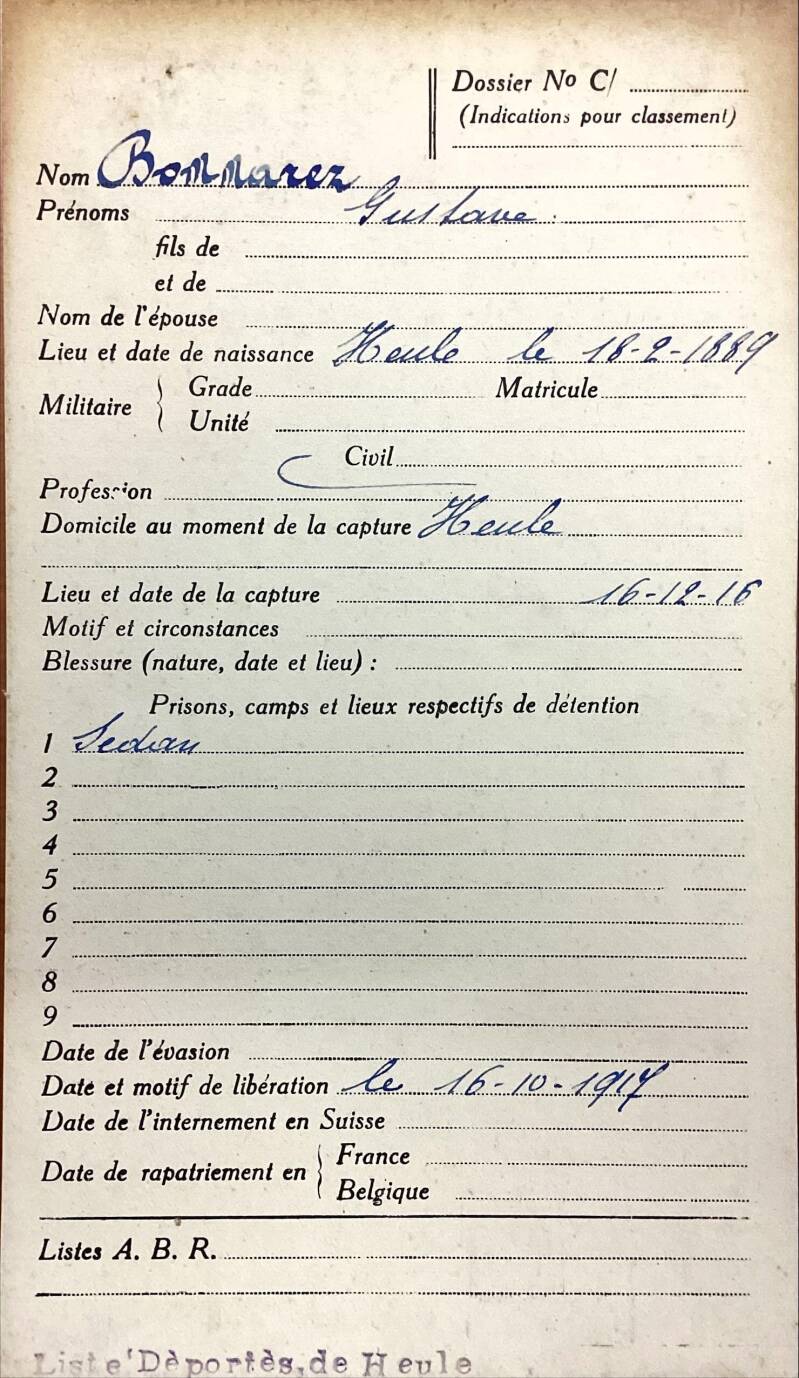 Dossier No C/
(Indications pour classement)
Nom Bonnarez
Prénoms Gustave.
fils de
et de
Nom de l'épouse
Lieu et date de naissance Heule le 18-2-1889
Militaire { Grade Matricule
Unité
Civil
Profession
Domicile au moment de la capture Heule
Lieu et date de la capture 16-12-16
Motif et circonstances
Blessure (nature, date et lieu) :
Prisons, camps et lieux respectifs de détention
1 Sedan
2
3
4
5
6
7
8
9
Date de l'évasion
Date et motif de libération le 16-10-1917
Date de l'internement en Suisse
Date de rapatriement en { France
Belgique
Listes A. B. R.
Liste Dèportès,de Heule